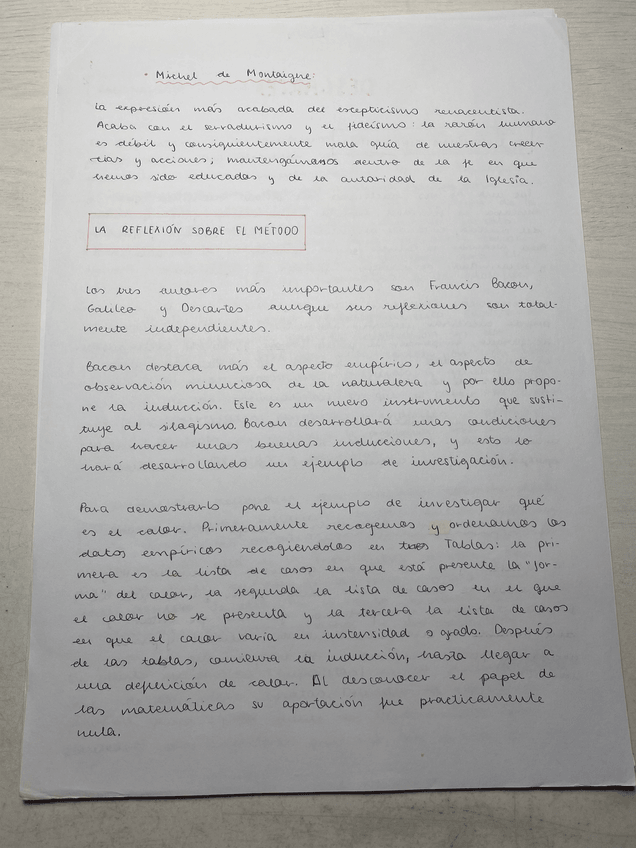 · Michel de Montaigne:
La expresión más acabada del escepticismo renacentista.
Acaba con el serradurismo y el fideísmo: la razón humana
es débil y consiguientemente mala guía de nuestras creen
cias y acciones; mantengámonos dentro de la fe en que
hemos sido educados y de la autoridad de la Iglesia.
LA REFLEXIÓN SOBRE EL MÉTODO
Los tres autores más importantes son Francis Bacon,
Galileo y Descartes aunque sus reflexiones son total-
mente independientes.
Bacon destaca más el aspecto empírico, el aspecto de
observación minuciosa de la naturaleza y por ello propo-
ne la inducción. Este es un nuevo instrumento que susti-
tuye al silogismo. Bacon desarrollará unas condiciones
para hacer unas buenas inducciones, y esto lo
hará desarrollando un ejemplo de investigación.
Para demostrarlo pone el ejemplo de investigar qué
es el calor. Primeramente recogemos y ordenamos los
datos empíricos recogiéndolos en tres Tablas: la pri-
mera es la lista de casos en que está presente la "for-
ma" del calor, la segunda la lista de casos en el que
el calor no se presenta y la tercera la lista de casos
en que el calor varía en instensidad o grado. Después
de las tablas, comienza la inducción, hasta llegar a
una definición de calor. Al desconocer el papel de
las matemáticas su aportación fue practicamente
nula.